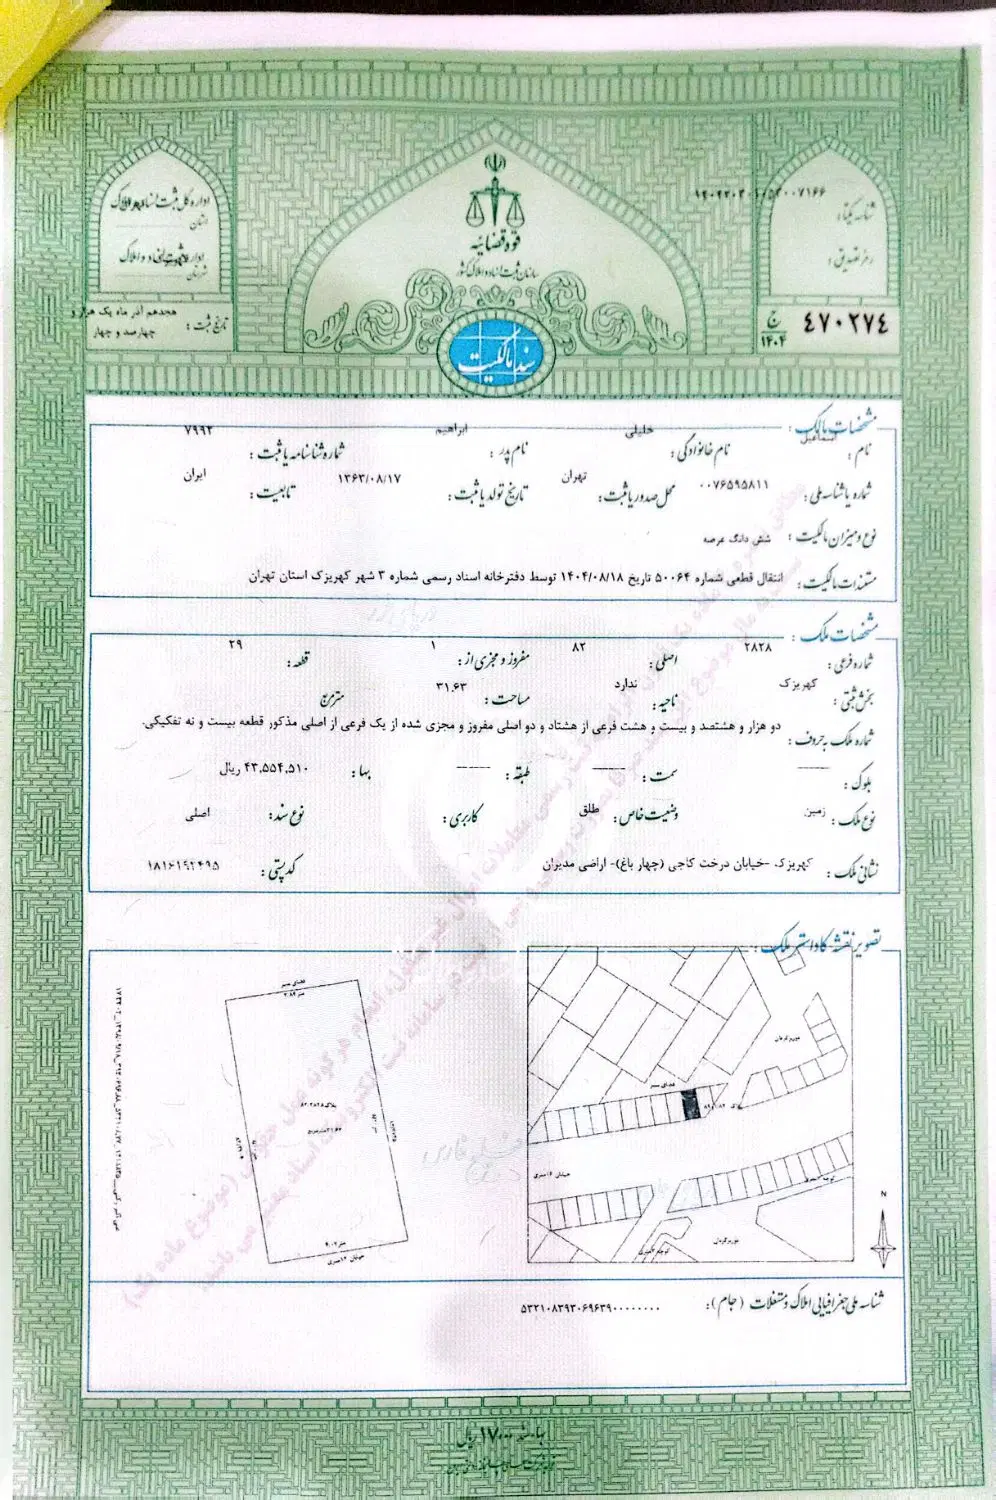 قوه قضائیه
سازمان ثبت اسناد و املاک کشور
شناسه یکتا :
رمز تصدیق :
۴۷۰۲۷۴
ج
۱۴۰۴
اداره کل ثبت اسناد و املاک
استان
اداره ثبت اسناد و املاک
شهرستان
تاریخ ثبت : هجدهم آذر ماه یک هزار و
چهارصد و چهار
سند مالکیت
مشخصات مالک :
نام : اسماعیل نام خانوادگی : خلیلی نام پدر : ابراهیم شماره شناسنامه یا ثبت : ۷۹۹۲
شماره یا شناسه ملی : ۰۰۷۶۵۹۵۸۱۱ محل صدور یا ثبت : تهران تاریخ تولد یا ثبت : ۱۳۶۳/۰۸/۱۷ تابعیت : ایران
نوع و میزان مالکیت : شش دانگ عرصه
مستندات مالکیت : انتقال قطعی شماره ۵۰۰۶۴ تاریخ ۱۴۰۴/۰۸/۱۸ توسط دفترخانه اسناد رسمی شماره ۳ شهر کهریزک استان تهران
مشخصات ملک :
شماره فرعی : ۲۸۲۸ اصلی : ۸۲ مفروز و مجزی از : ۱ قطعه : ۲۹
بخش ثبتی : کهریزک ناحیه : ندارد مساحت : ۳۱.۶۳ مترمربع
شماره ملک به حروف : دو هزار و هشتصد و بیست و هشت فرعی از هشتاد و دو اصلی مفروز و مجزی شده از یک فرعی از اصلی مذکور قطعه بیست و نه تفکیکی.
بلوک : ـــــ سمت : ـــــ طبقه : ـــــ بها : ۴۳,۵۵۴,۵۱۰ ریال
نوع ملک : زمین وضعیت خاص : طلق کاربری : نوع سند : اصلی
نشانی ملک : کهریزک -خیابان درخت کاجی (چهار باغ)- اراضی مدیران کد پستی : ۱۸۱۶۱۹۲۴۹۵
تصویر نقشه کاداستر ملک :
فضای سبز
خیابان ۱۶متری
فضای سبز
خیابان ۱۶متری
N
شناسه ملی جغرافیایی املاک و مستغلات (جام) : ۵۳۲۱۰۸۳۹۳۰۶۹۶۳۹۰۰۰۰۰۰۰۰